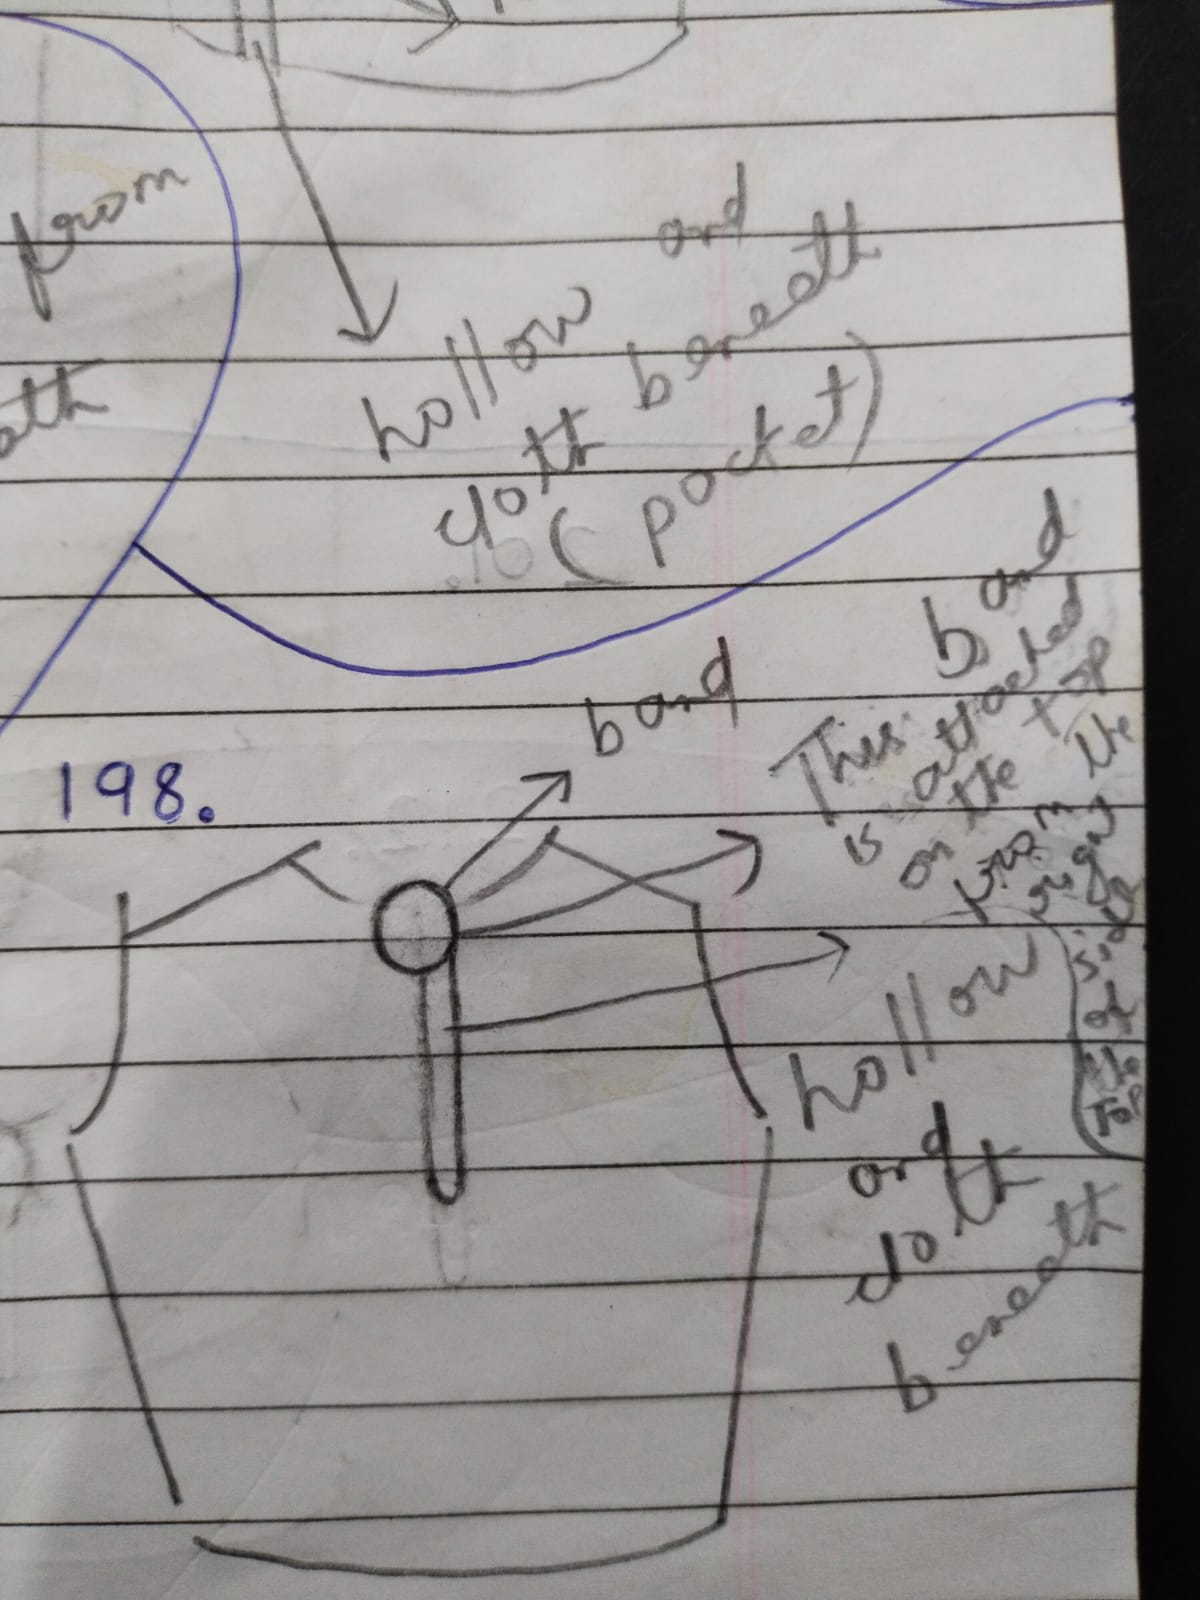 from
hollow and
cloth beneath
(pocket)
198.
band
This band
is attached
on the top
from the
right
side
of
the
Top
hollow
and
cloth
beneath